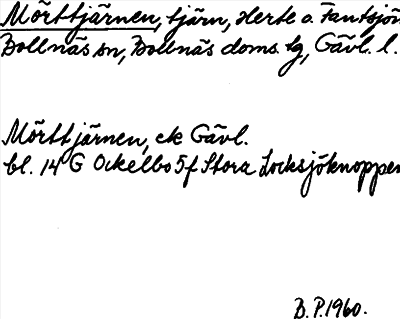 Mörttjärnen, tjärn, Herte o. Fantsjön
Bollnäs sn, Bollnäs doms. tg, Gävl. l.
Mörttjärnen, ek Gävl.
bl. 14 G Ockelbo 5 f Stora Locksjöknoppen
B. P. 1960.